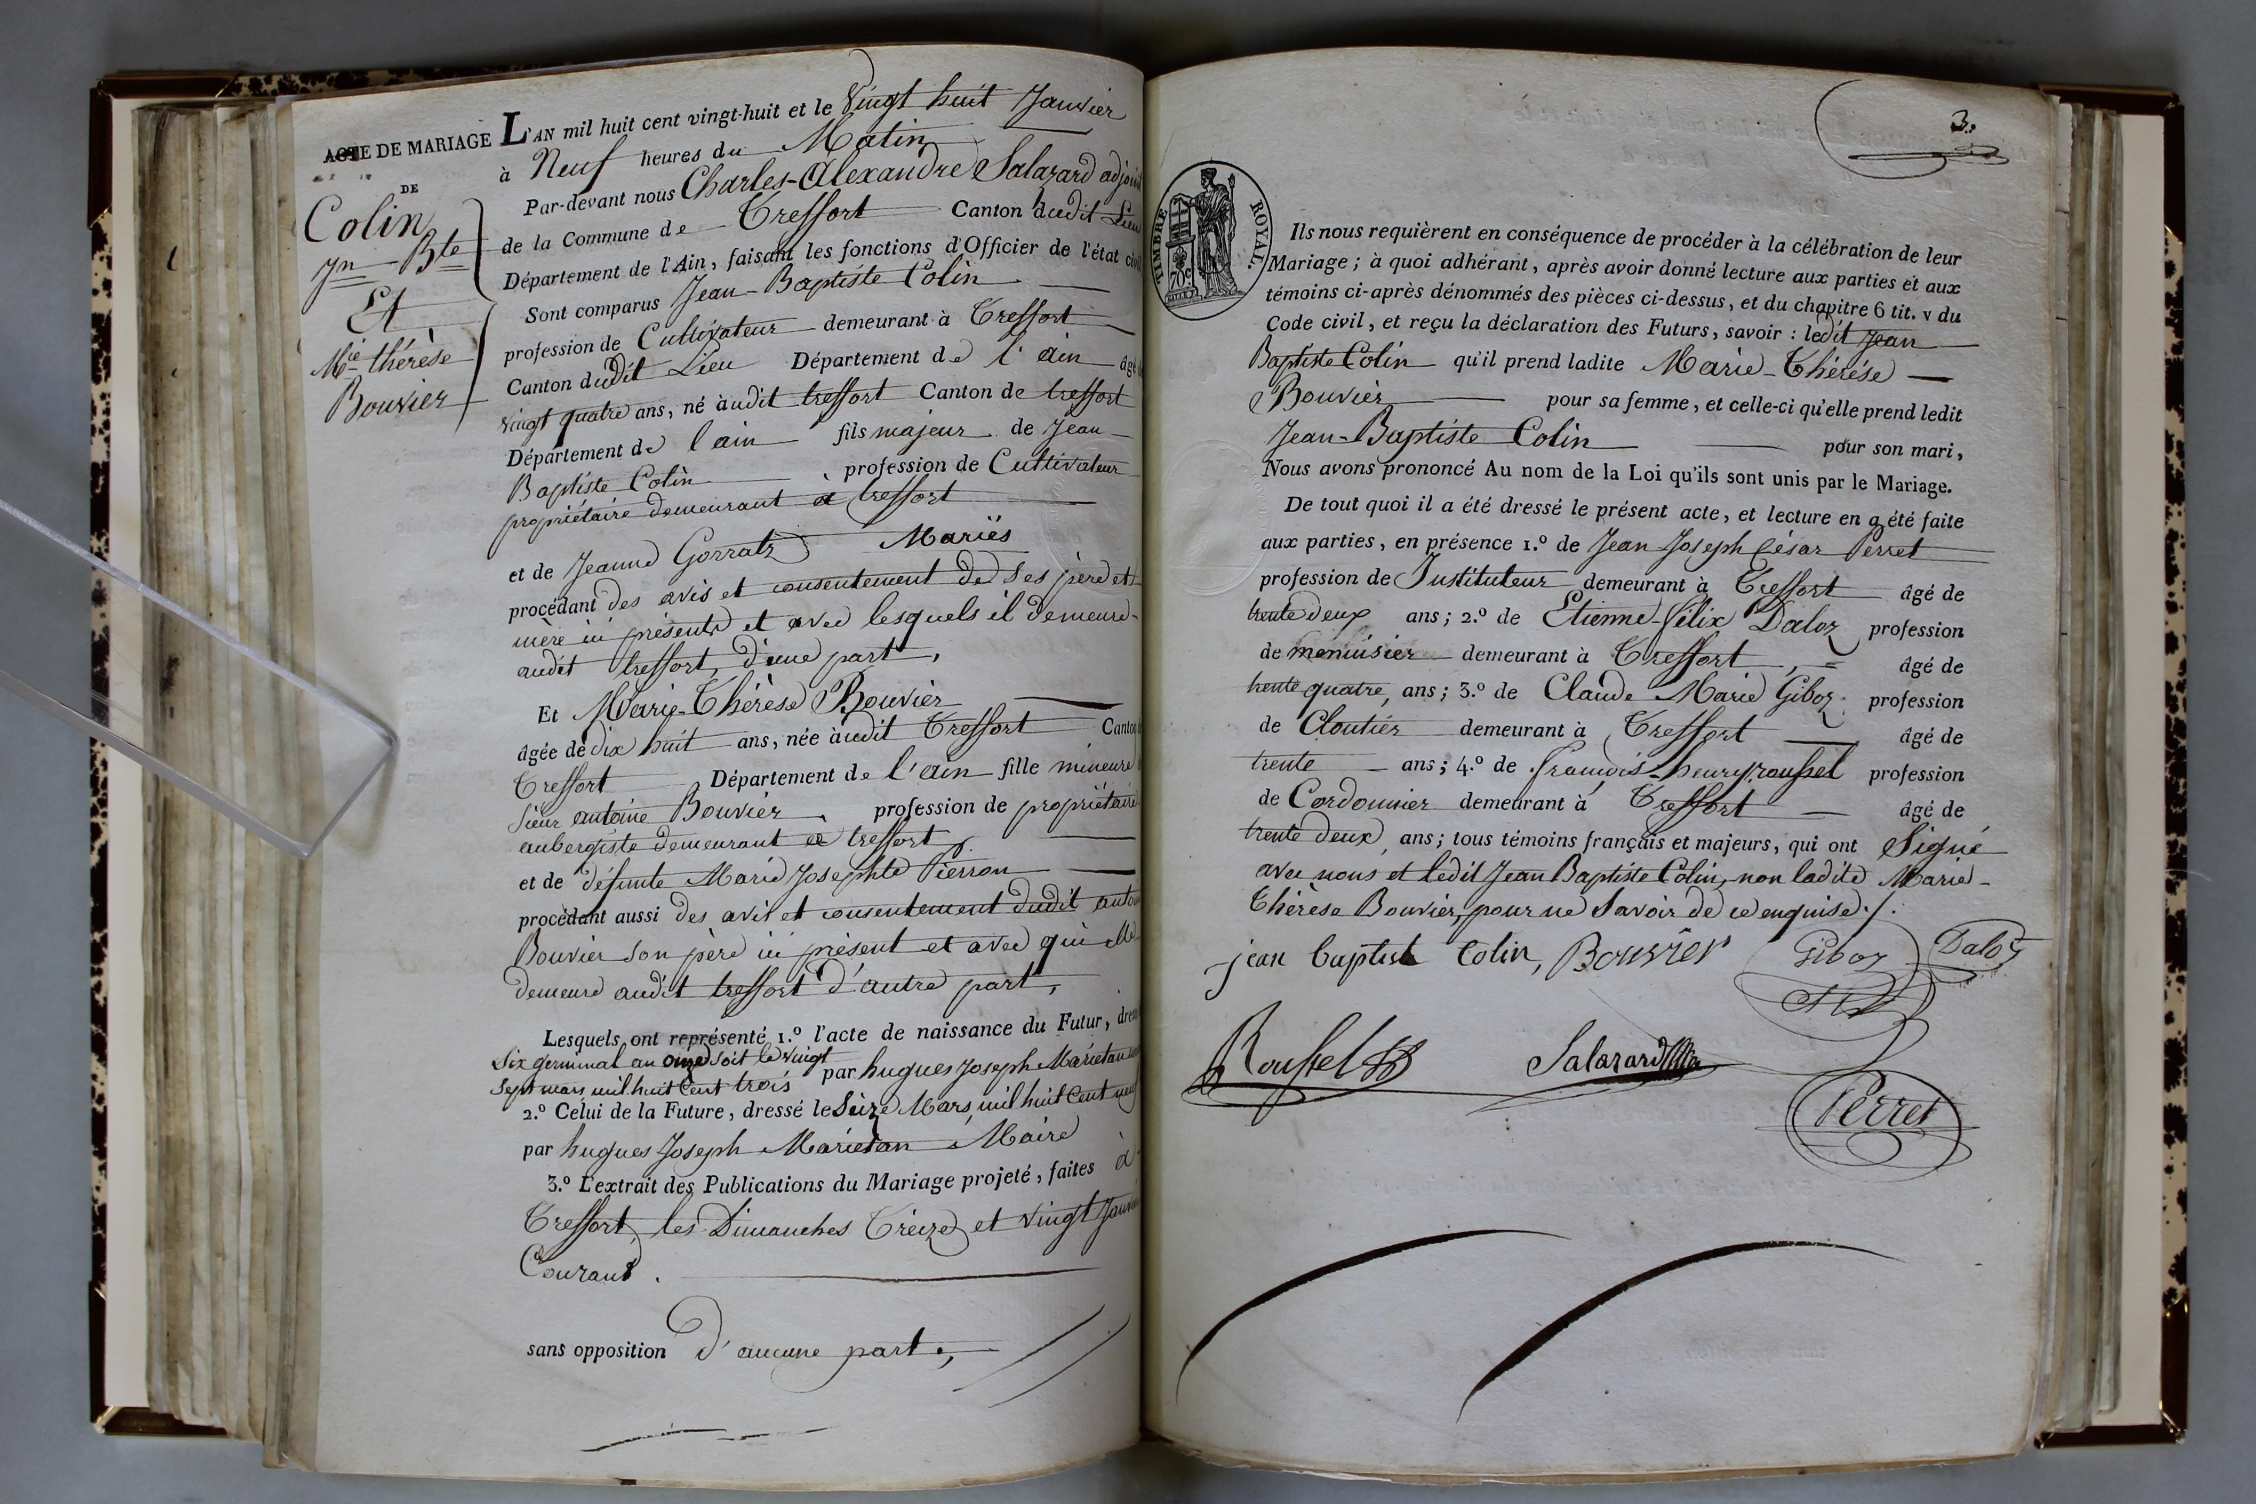 ACTE DE MARIAGE
DE
Colin
Jn Bte
Et
Mie thérèse
Bouvier
L'AN mil huit cent vingt-huit et le Vingt huit Janvier
à Neuf heures du Matin
Par-devant nous Charles-Alexandre Salazard adjoint
de la Commune de Treffort Canton dudit Lieu
Département de l'Ain, faisant les fonctions d'Officier de l'état civil
Sont comparus Jean-Baptiste Colin
profession de Cultivateur demeurant à Treffort
Canton dudit Lieu Département de l'ain âgé
vingt quatre ans, né audit treffort Canton de treffort
Département de l'ain fils majeur de Jean
Baptiste Colin profession de Cultivateur
propriétaire demeurant à treffort
et de Jeanne Gorratz Mariés
procédant des avis et consentement de ses père et
mère ici présents et avec lesquels il demeure
audit treffort, d'une part,
Et Marie-Thérèse Bouvier
âgée de dix huit ans, née audit Treffort Canton
Treffort Département de l'ain fille mineure
sieur antoine Bouvier profession de propriétaire
aubergiste demeurant à treffort
et de défunte Marie Josephte Pierron
procédant aussi des avis et consentement dudit antoine
Bouvier son père ici présent et avec qui elle
demeure audit treffort d'autre part,
Lesquels ont représenté 1.º l'acte de naissance du Futur, dressé
Six germinal an onze soit le vingt
sept mars mil huit cent trois par hugues Joseph Marietan
2.º Celui de la Future, dressé le Seize Mars mil huit Cent neuf
par hugues Joseph Marietan Maire
3.º L'extrait des Publications du Mariage projeté, faites à
Treffort, les Dimanches Treize et vingt Janvier
Courant.
sans opposition d'aucune part.,
3.
TIMBRE ROYAL.
Ils nous requièrent en conséquence de procéder à la célébration de leur
Mariage; à quoi adhérant, après avoir donné lecture aux parties et aux
témoins ci-après dénommés des pièces ci-dessus, et du chapitre 6 tit. v du
Code civil, et reçu la déclaration des Futurs, savoir : ledit Jean
Baptiste Colin qu'il prend ladite Marie-Thérèse
Bouvier pour sa femme, et celle-ci qu'elle prend ledit
Jean-Baptiste Colin pour son mari,
Nous avons prononcé Au nom de la Loi qu'ils sont unis par le Mariage.
De tout quoi il a été dressé le présent acte, et lecture en a été faite
aux parties, en présence 1.º de Jean Joseph César Perret
profession de Instituteur demeurant à Treffort âgé de
trente deux ans; 2.º de Etienne-félix Daloz profession
de menuisier demeurant à Treffort, âgé de
trente quatre, ans; 3.º de Claude Marie Giboz profession
de Cloutier demeurant à Treffort âgé de
trente ans; 4.º de françois-henry roussel profession
de Cordonnier demeurant à Treffort âgé de
trente deux, ans; tous témoins français et majeurs, qui ont Signé
avec nous et ledit Jean Baptiste Colin, non ladite Marie-
Thérèse Bouvier, pour ne Savoir de ce enquise./.
jean baptiste Colin, Bouvier Giboz Daloz
Roussel Salazard
Perret